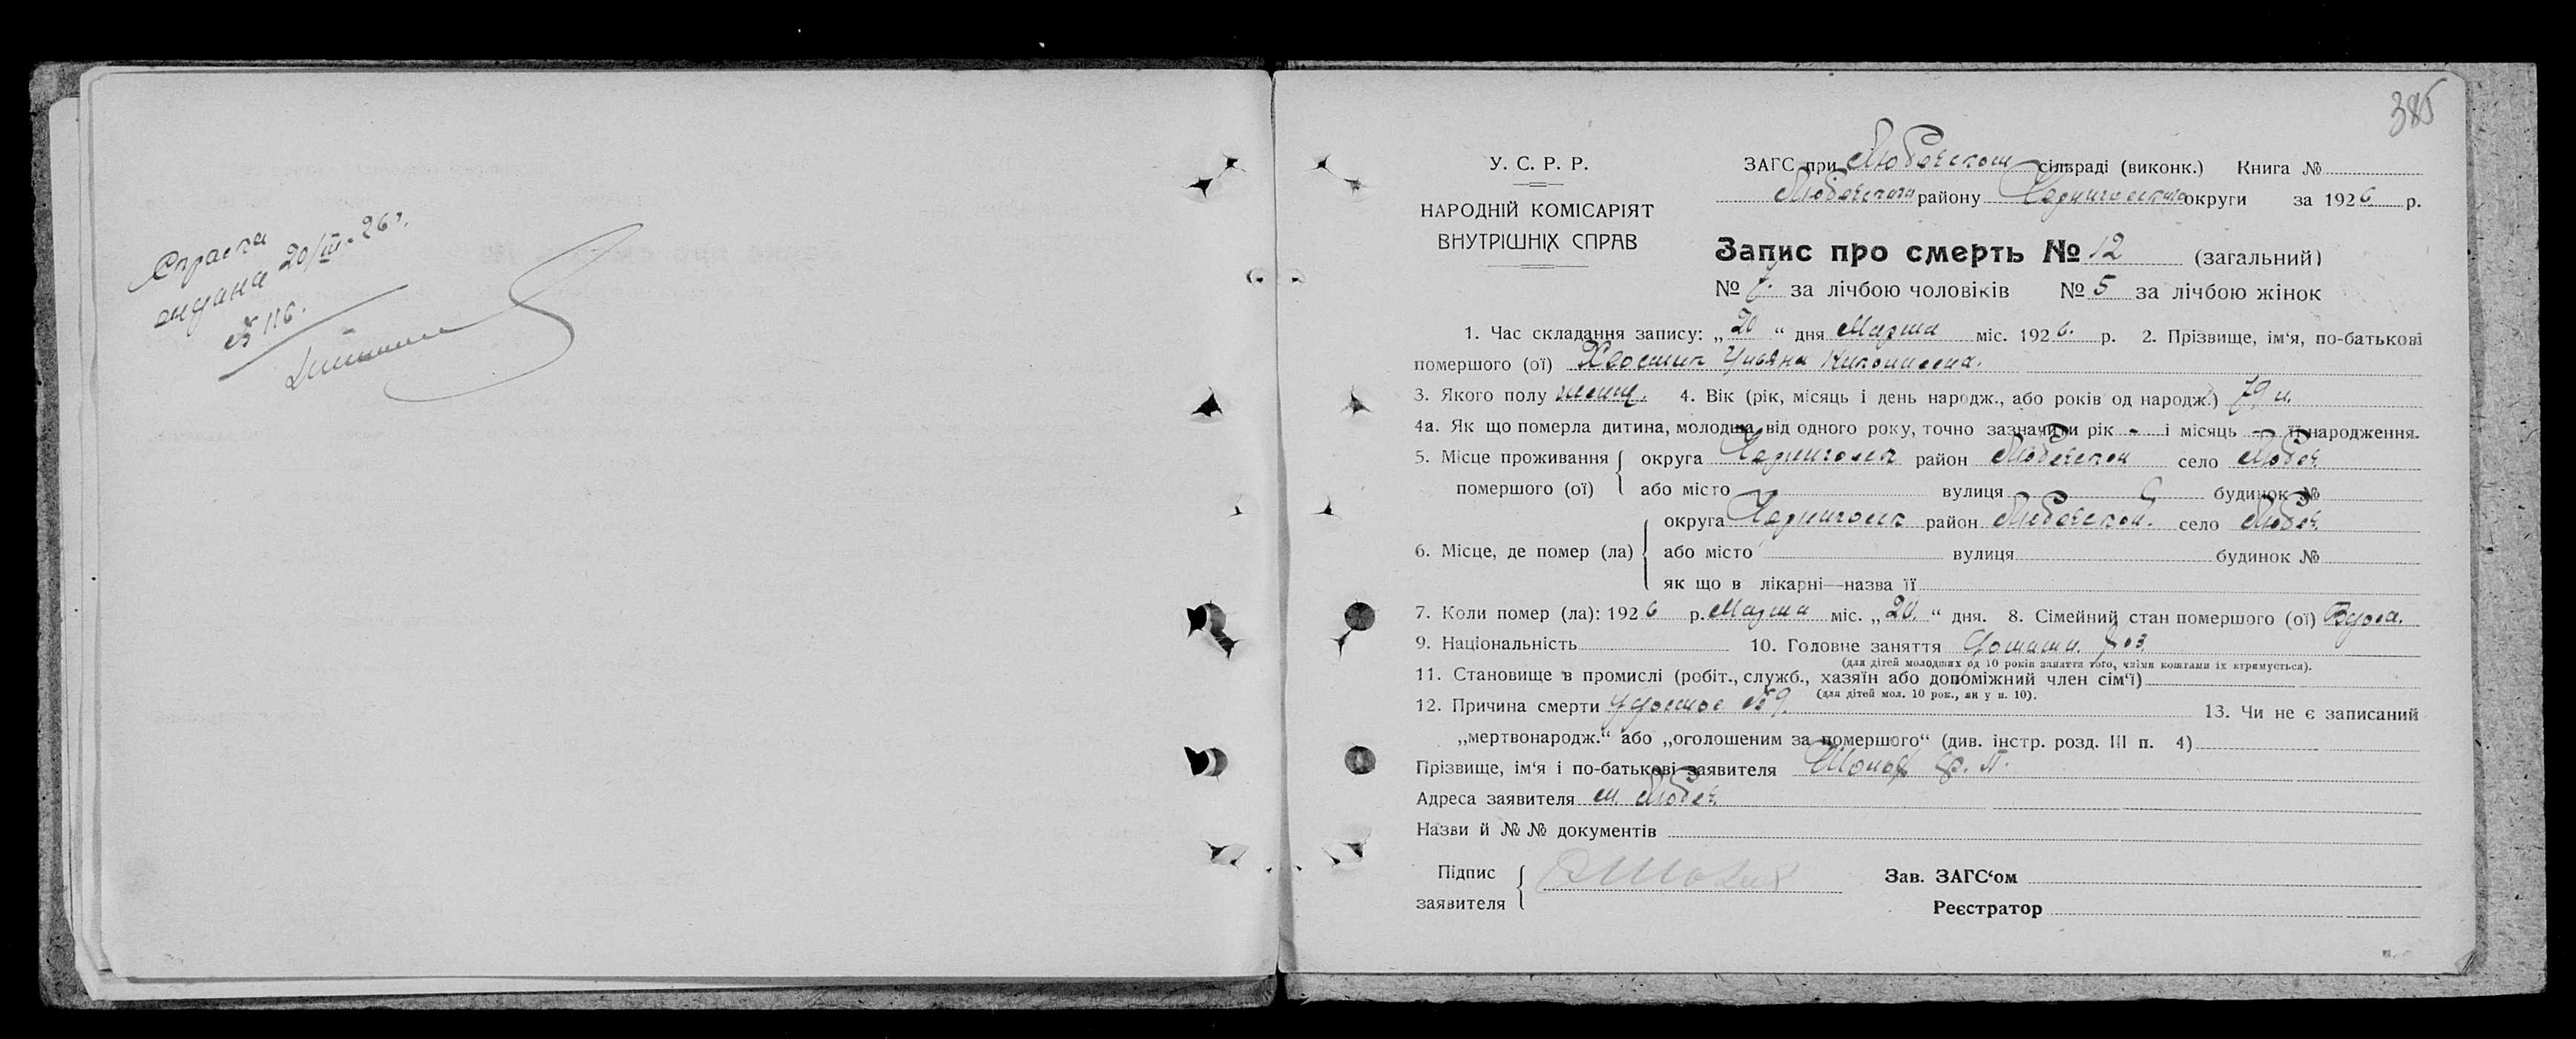 Справка
выдана 20/III-26г.
№ 116.
385
У. С. Р. Р.
НАРОДНІЙ КОМІСАРІЯТ
ВНУТРІШНІХ СПРАВ
ЗАГС при Любечском сільраді (виконк.) Книга №
Любечского району Черниговской округи за 1926 р.
Запис про смерть № 12 (загальний)
№ за лічбою чоловіків № 5 за лічбою жінок
1. Час складання запису: „20“ дня Марта міс. 1926. р. 2. Прізвище, ім‘я, по-батькові
померлого (ої) Ульяна
3. Якого полу женщ. 4. Вік (рік, місяць і день народж., або років од народж.) 79 л.
4а. Як що померла дитина, молодша від одного року, точно зазначити рік - і місяць - її народження.
5. Місце проживання округа Черниговск район Любечский село Любеч
помершого (ої) або місто вулиця будинок №
6. Місце, де помер (ла) округа Черниговск район Любечский. село Любеч
або місто вулиця будинок №
як що в лікарні—назва її
7. Коли помер (ла): 1926 р. Марта міс. „20.“ дня. 8. Сімейний стан помершого (ої) Вдова.
9. Національність 10. Головне заняття Домашн. хоз.
(для дітей молодших од 10 років заняття того, чиїми коштами їх втримується).
11. Становище в промислі (робіт., служб., хазяїн або допоміжний член сім‘ї)
(для дітей мол. 10 рок., як у п. 10).
12. Причина смерти удостов. №9. 13. Чи не є записаний
„мертвонародж.“ або „оголошеним за помершого“ (див. інстр. розд. III п. 4)
Прізвище, ім‘я і по-батькові заявителя
Адреса заявителя м. Любеч
Назви й №№ документів
Підпис
заявителя
Зав. ЗАГС‘ом
Реєстратор